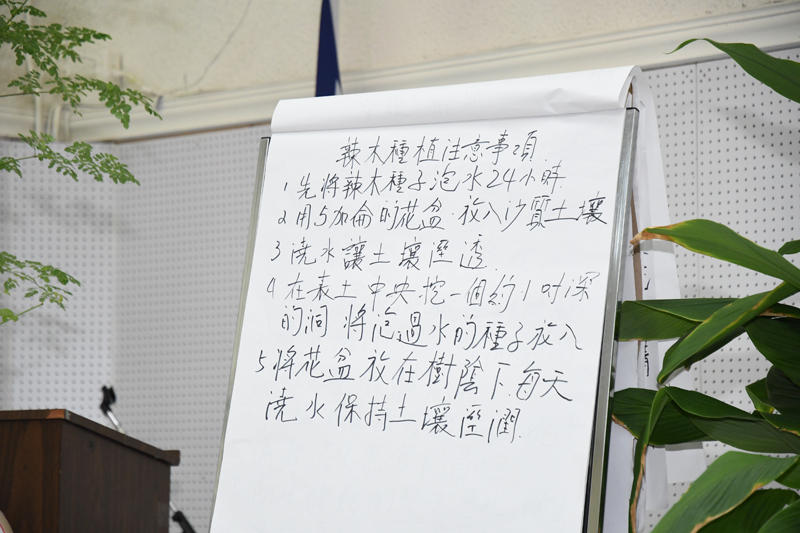 辣木種植注意事項
1 先將辣木種子泡水24小時
2 用5加侖的花盆 放入沙質土壤
3 澆水讓土壤溼透.
4 在表土中央挖一個約1吋深
的洞 將泡過水的種子放入
5 將花盆放在樹陰下.每天
澆水保持土壤溼潤.